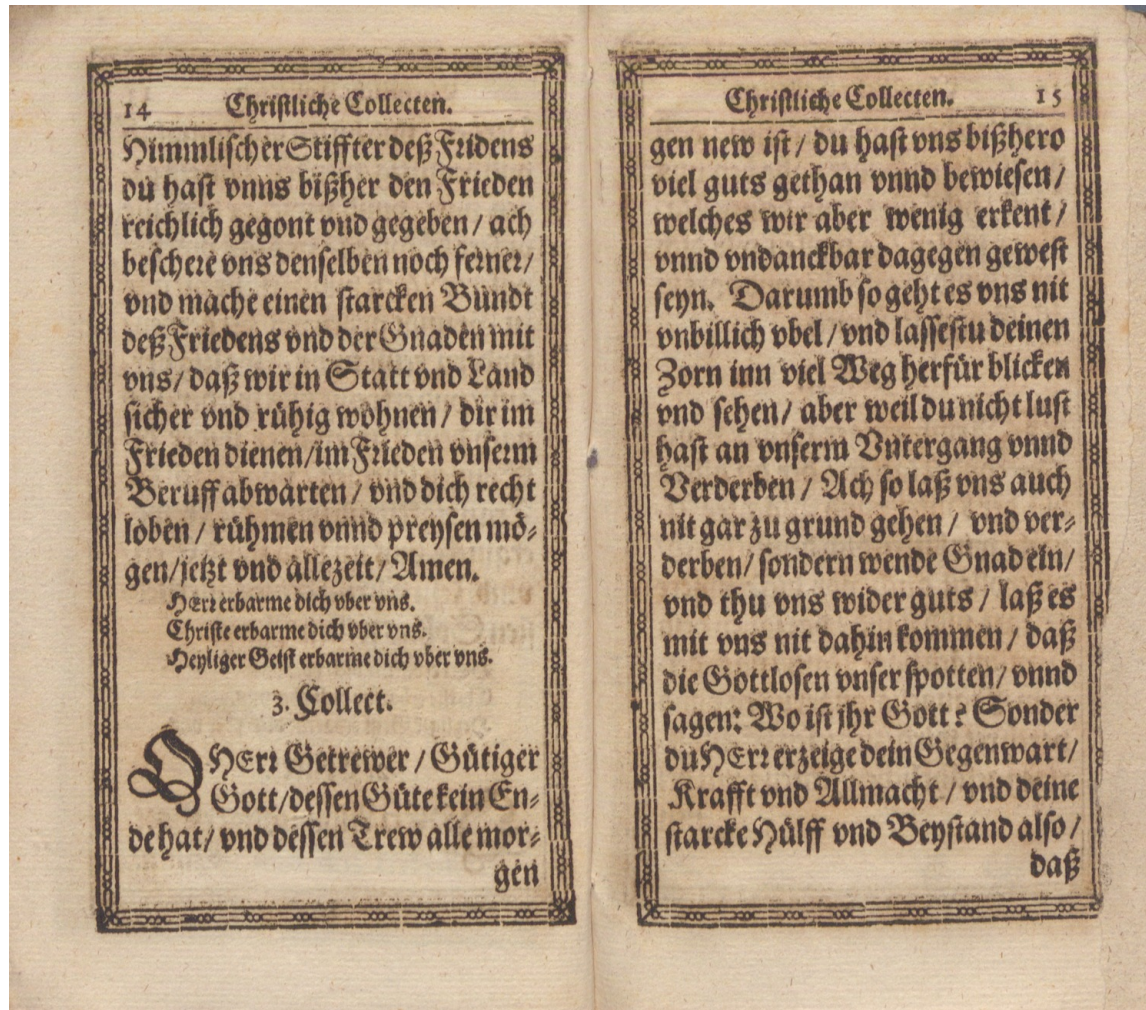 14 Christliche Collecten.
Himmlischer Stiffter deß Fridens
du hast vnns bißher den Frieden
reichlich gegont vnd gegeben / ach
beschere vns denselben noch ferner /
vnd mache einen starcken Bundt
deß Friedens vnd der Gnaden mit
vns / daß wir in Statt vnd Land
sicher vnd rühig wohnen / dir im
Frieden dienen / im Frieden vnserm
Beruff abwarten / vnd dich recht
loben / rühmen vnnd preysen mö-
gen / jetzt vnd allezeit / Amen.
HErr erbarme dich vber vns.
Christe erbarme dich vber vns.
Heyliger Geist erbarme dich vber vns.
3. Collect.
O HErr Getrewer / Gütiger
Gott / dessen Güte kein En-
de hat / vnd dessen Trew alle mor-
gen
Christliche Collecten. 15
gen new ist / du hast vns bißhero
viel guts gethan vnnd bewiesen /
welches wir aber wenig erkent /
vnnd vndanckbar dagegen gewest
seyn. Darumb so geht es vns nit
vnbillich vbel / vnd lassestu deinen
Zorn inn viel Weg herfür blicken
vnd sehen / aber weil du nicht lust
hast an vnserm Vntergang vnnd
Verderben / Ach so laß vns auch
nit gar zu grund gehen / vnd ver-
derben / sondern wende Gnad ein /
vnd thu vns wider guts / laß es
mit vns nit dahin kommen / daß
die Gottlosen vnser spotten / vnnd
sagen: Wo ist jhr Gott? Sonder
du HErr erzeige dein Gegenwart /
Krafft vnd Allmacht / vnd deine
starcke Hülff vnd Beystand also /
daß